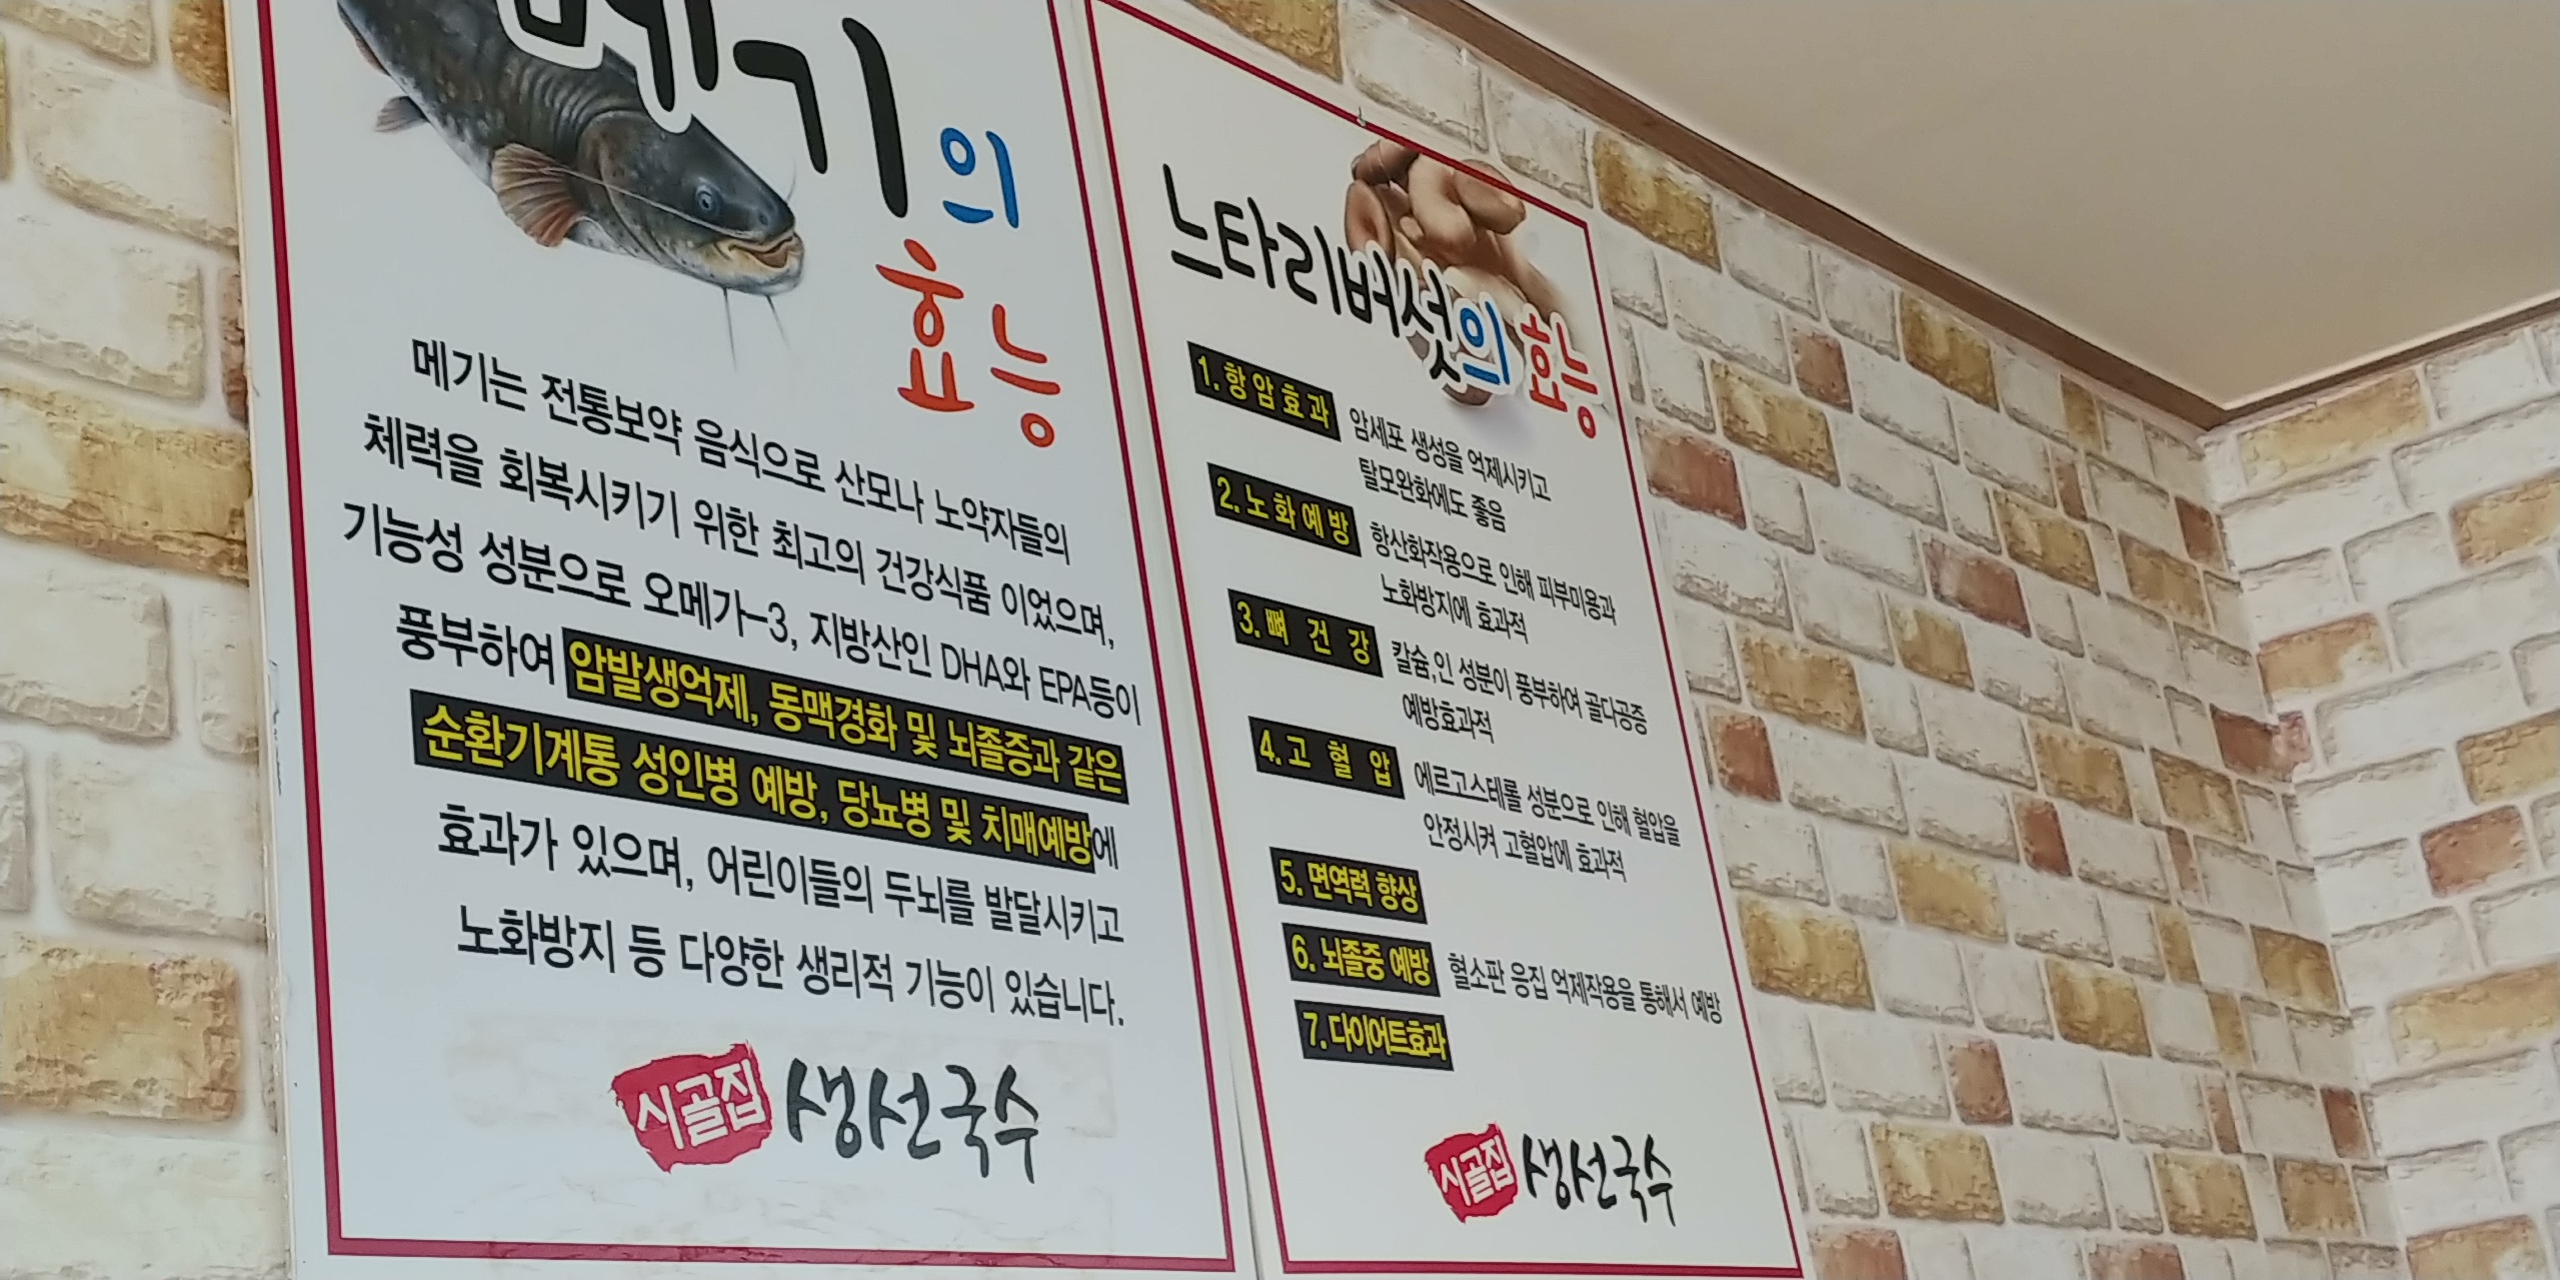 메기의
효능
메기는 전통보약 음식으로 산모나 노약자들의
체력을 회복시키기 위한 최고의 건강식품 이었으며,
기능성 성분으로 오메가-3, 지방산인 DHA와 EPA등이
풍부하여 암발생억제, 동맥경화 및 뇌졸증과 같은
순환기계통 성인병 예방, 당뇨병 및 치매예방에
효과가 있으며, 어린이들의 두뇌를 발달시키고
노화방지 등 다양한 생리적 기능이 있습니다.
시골집 생선국수
느타리버섯의 효능
1. 항암효과
암세포 생성을 억제시키고
탈모완화에도 좋음
2. 노화예방
항산화작용으로 인해 피부미용과
노화방지에 효과적
3. 뼈 건 강
칼슘,인 성분이 풍부하여 골다공증
예방효과적
4. 고 혈 압
에르고스테롤 성분으로 인해 혈압을
안정시켜 고혈압에 효과적
5. 면역력 향상
6. 뇌졸중 예방 혈소판 응집 억제작용을 통해서 예방
7. 다이어트효과
시골집 생선국수